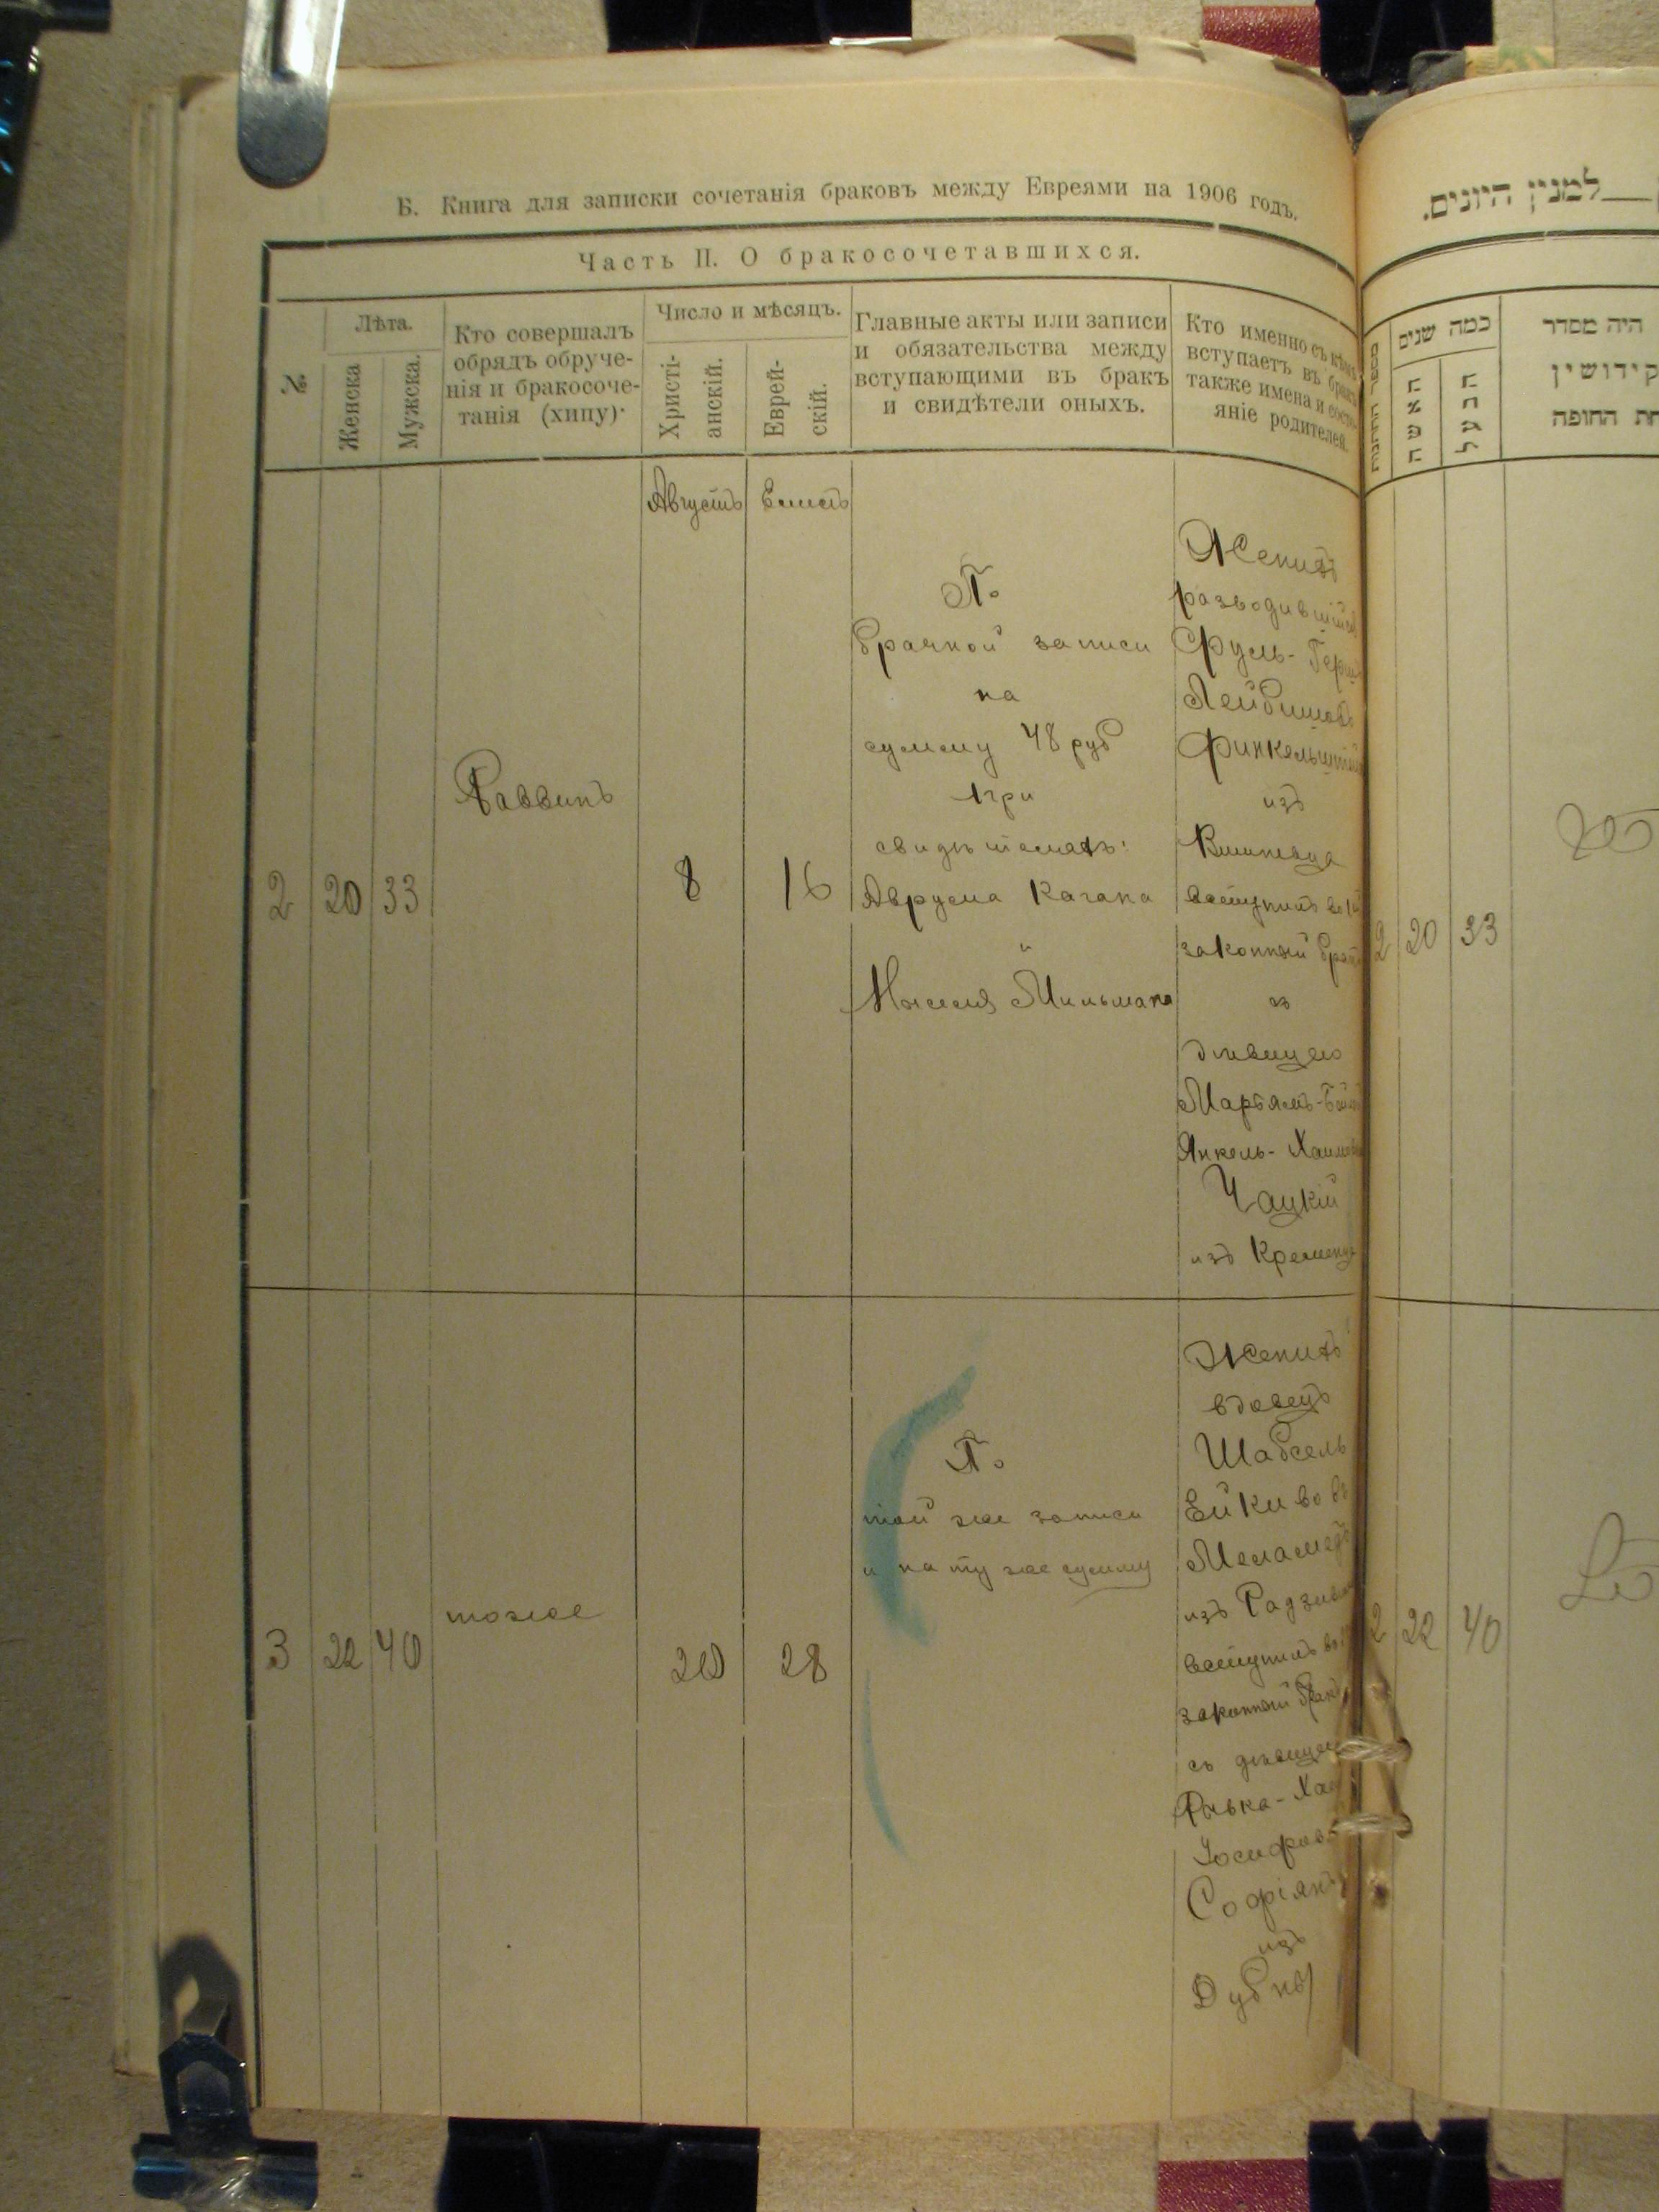 Б. Книга для записки сочетанія браковъ между Евреями на 1906 годъ.
Часть II. О бракосочетавшихся.
№.
Лѣта.
Женска
Мужска.
Кто совершалъ
обрядъ обруче-
нія и бракосоче-
танія (хипу).
Число и мѣсяцъ.
Христі-
анскій.
Еврей-
скій.
Главные акты или записи
и обязательства между
вступающими въ бракъ
и свидѣтели оныхъ.
Кто именно съ кѣмъ
вступаетъ въ бракъ
также имена и состо-
яніе родителей.
Августъ
2
20
33
Раввинъ
8
16
По
брачной записи
на
сумму 48 руб
при
свидѣтеляхъ:
Аврума Кагана
и
Мильмана
Женихъ
разводившійся
Сруль-Герш
Лейбишовъ
Финкельштейн
изъ
Вишневца
вступилъ въ 1й
законный бракъ
съ
дѣвицею
Марьямъ-
Янкель-Хаимов
Чацкій
изъ Кременца
3
22
40
тоже
20
28
По
той же записи
и на ту же сумму
Женихъ
вдовецъ
Шабсель
Ейкивовъ
Меламедъ
изъ Радзивил
вступилъ во
законный бракъ
съ дѣвицею
Ривка-Хая
Іосифов
Софіянъ
изъ
Дубны
למנין היונים.
מספר החתונות
כמה שנים
האשה
הבעל
היה מסדר
קידושין
חת החופה
2
20
33
2
22
40